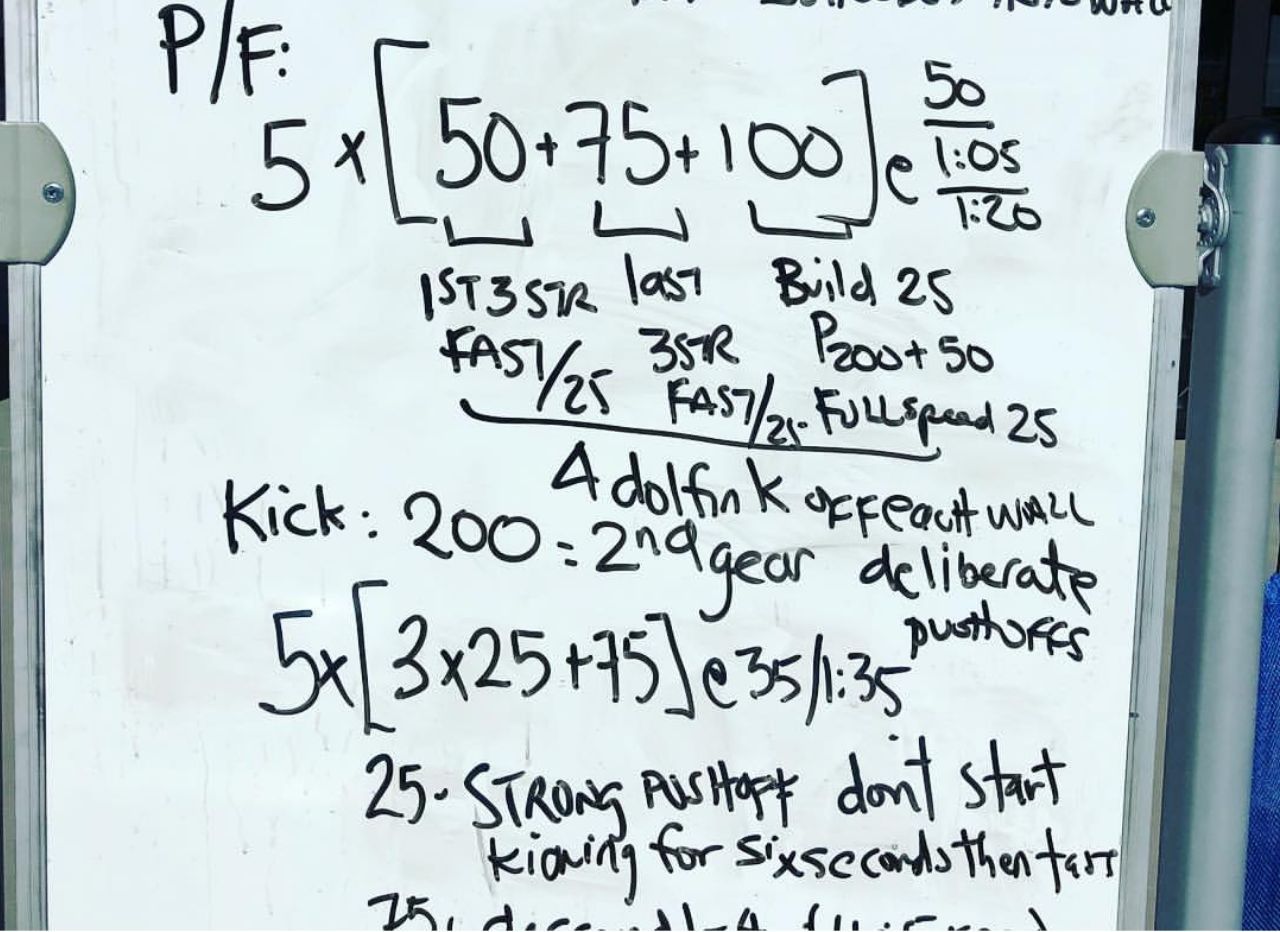 WALL
P/F:
5 x [50 + 75 + 100] @ 50 / 1:05 / 1:20
1ST 3 STR last Build 25
FAST/25 3STR P200 + 50
FAST/25. FULL speed 25
4 dolfin K OFF EACH WALL
Kick: 200 = 2nd gear deliberate
pushoffs
5x[3x25 +75] @ 35/1:35
25. STRONG PUSHOFF don't start
kicking for six seconds then fast
75.